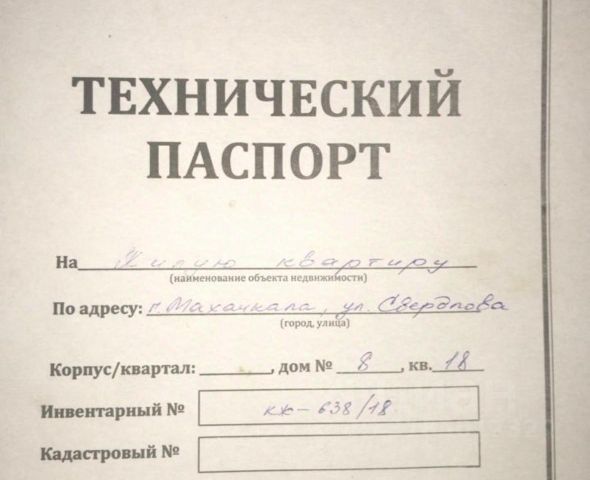 ТЕХНИЧЕСКИЙ
ПАСПОРТ
На Жилую квартиру
(наименование объекта недвижимости)
По адресу: г. Махачкала, ул. Свердлова
(город, улица)
Корпус/квартал: , дом № 8 , кв. 18
Инвентарный № кж-638/18
Кадастровый №